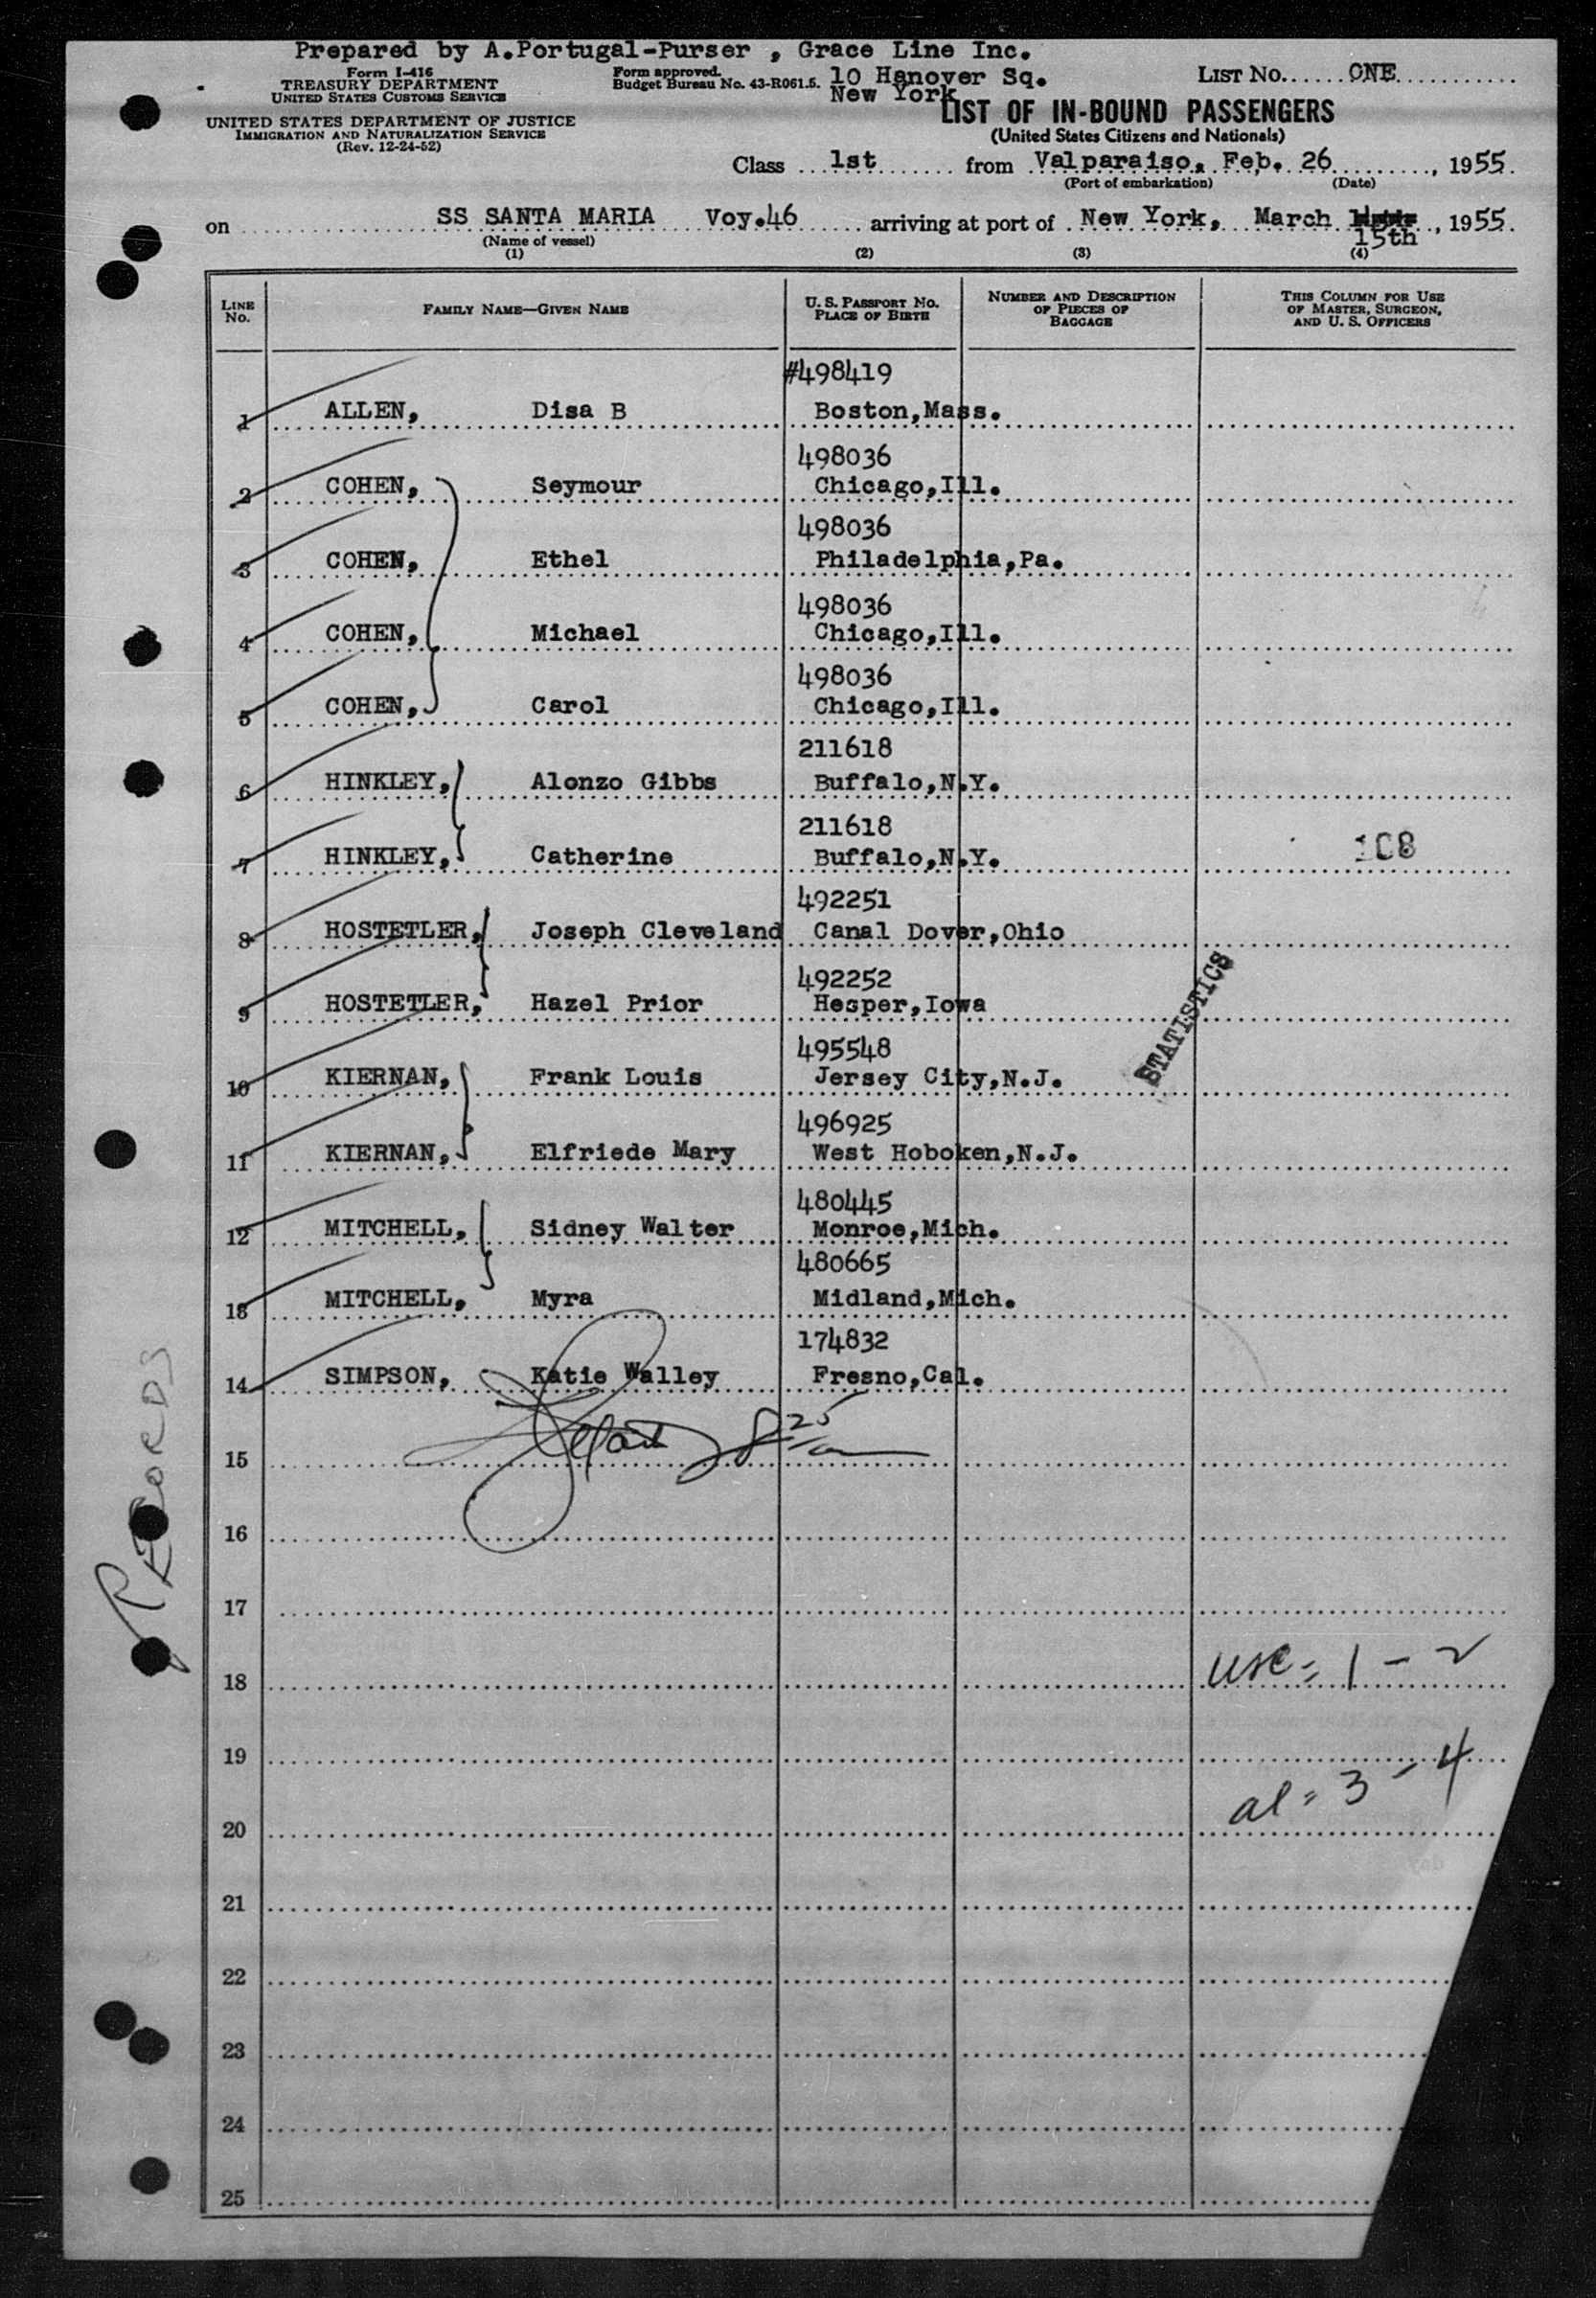 Prepared by A.Portugal-Purser , Grace Line Inc.
Form I-416
TREASURY DEPARTMENT
UNITED STATES CUSTOMS SERVICE
UNITED STATES DEPARTMENT OF JUSTICE
IMMIGRATION AND NATURALIZATION SERVICE
(Rev. 12-24-52)
Form approved.
Budget Bureau No. 43-R061.5.
10 Hanover Sq.
New York
LIST NO. ONE
LIST OF IN-BOUND PASSENGERS
(United States Citizens and Nationals)
Class 1st from Valparaiso, Feb. 26, 1955.
(Port of embarkation) (Date)
on SS SANTA MARIA Voy.46 arriving at port of New York, March 15th, 1955.
(Name of vessel)
(1) (2) (3) (4)
LINE NO. FAMILY NAME—GIVEN NAME U. S. PASSPORT NO. PLACE OF BIRTH NUMBER AND DESCRIPTION OF PIECES OF BAGGAGE THIS COLUMN FOR USE OF MASTER, SURGEON, AND U. S. OFFICERS
#498419
1 ALLEN, Disa B Boston,Mass.
498036
2 COHEN, Seymour Chicago,Ill.
498036
3 COHEN, Ethel Philadelphia,Pa.
498036
4 COHEN, Michael Chicago,Ill.
498036
5 COHEN, Carol Chicago,Ill.
211618
6 HINKLEY, Alonzo Gibbs Buffalo,N.Y.
211618
7 HINKLEY, Catherine Buffalo,N.Y. 108
492251
8 HOSTETLER, Joseph Cleveland Canal Dover,Ohio
492252
9 HOSTETLER, Hazel Prior Hesper,Iowa
STATISTICS
495548
10 KIERNAN, Frank Louis Jersey City,N.J.
496925
11 KIERNAN, Elfriede Mary West Hoboken,N.J.
480445
12 MITCHELL, Sidney Walter Monroe,Mich.
480665
13 MITCHELL, Myra Midland,Mich.
174832
14 SIMPSON, Katie Walley Fresno,Cal.
15
16
17
18 USC = 1 - 2
19
al = 3 - 4
20
21
22
23
24
25
RECORDS